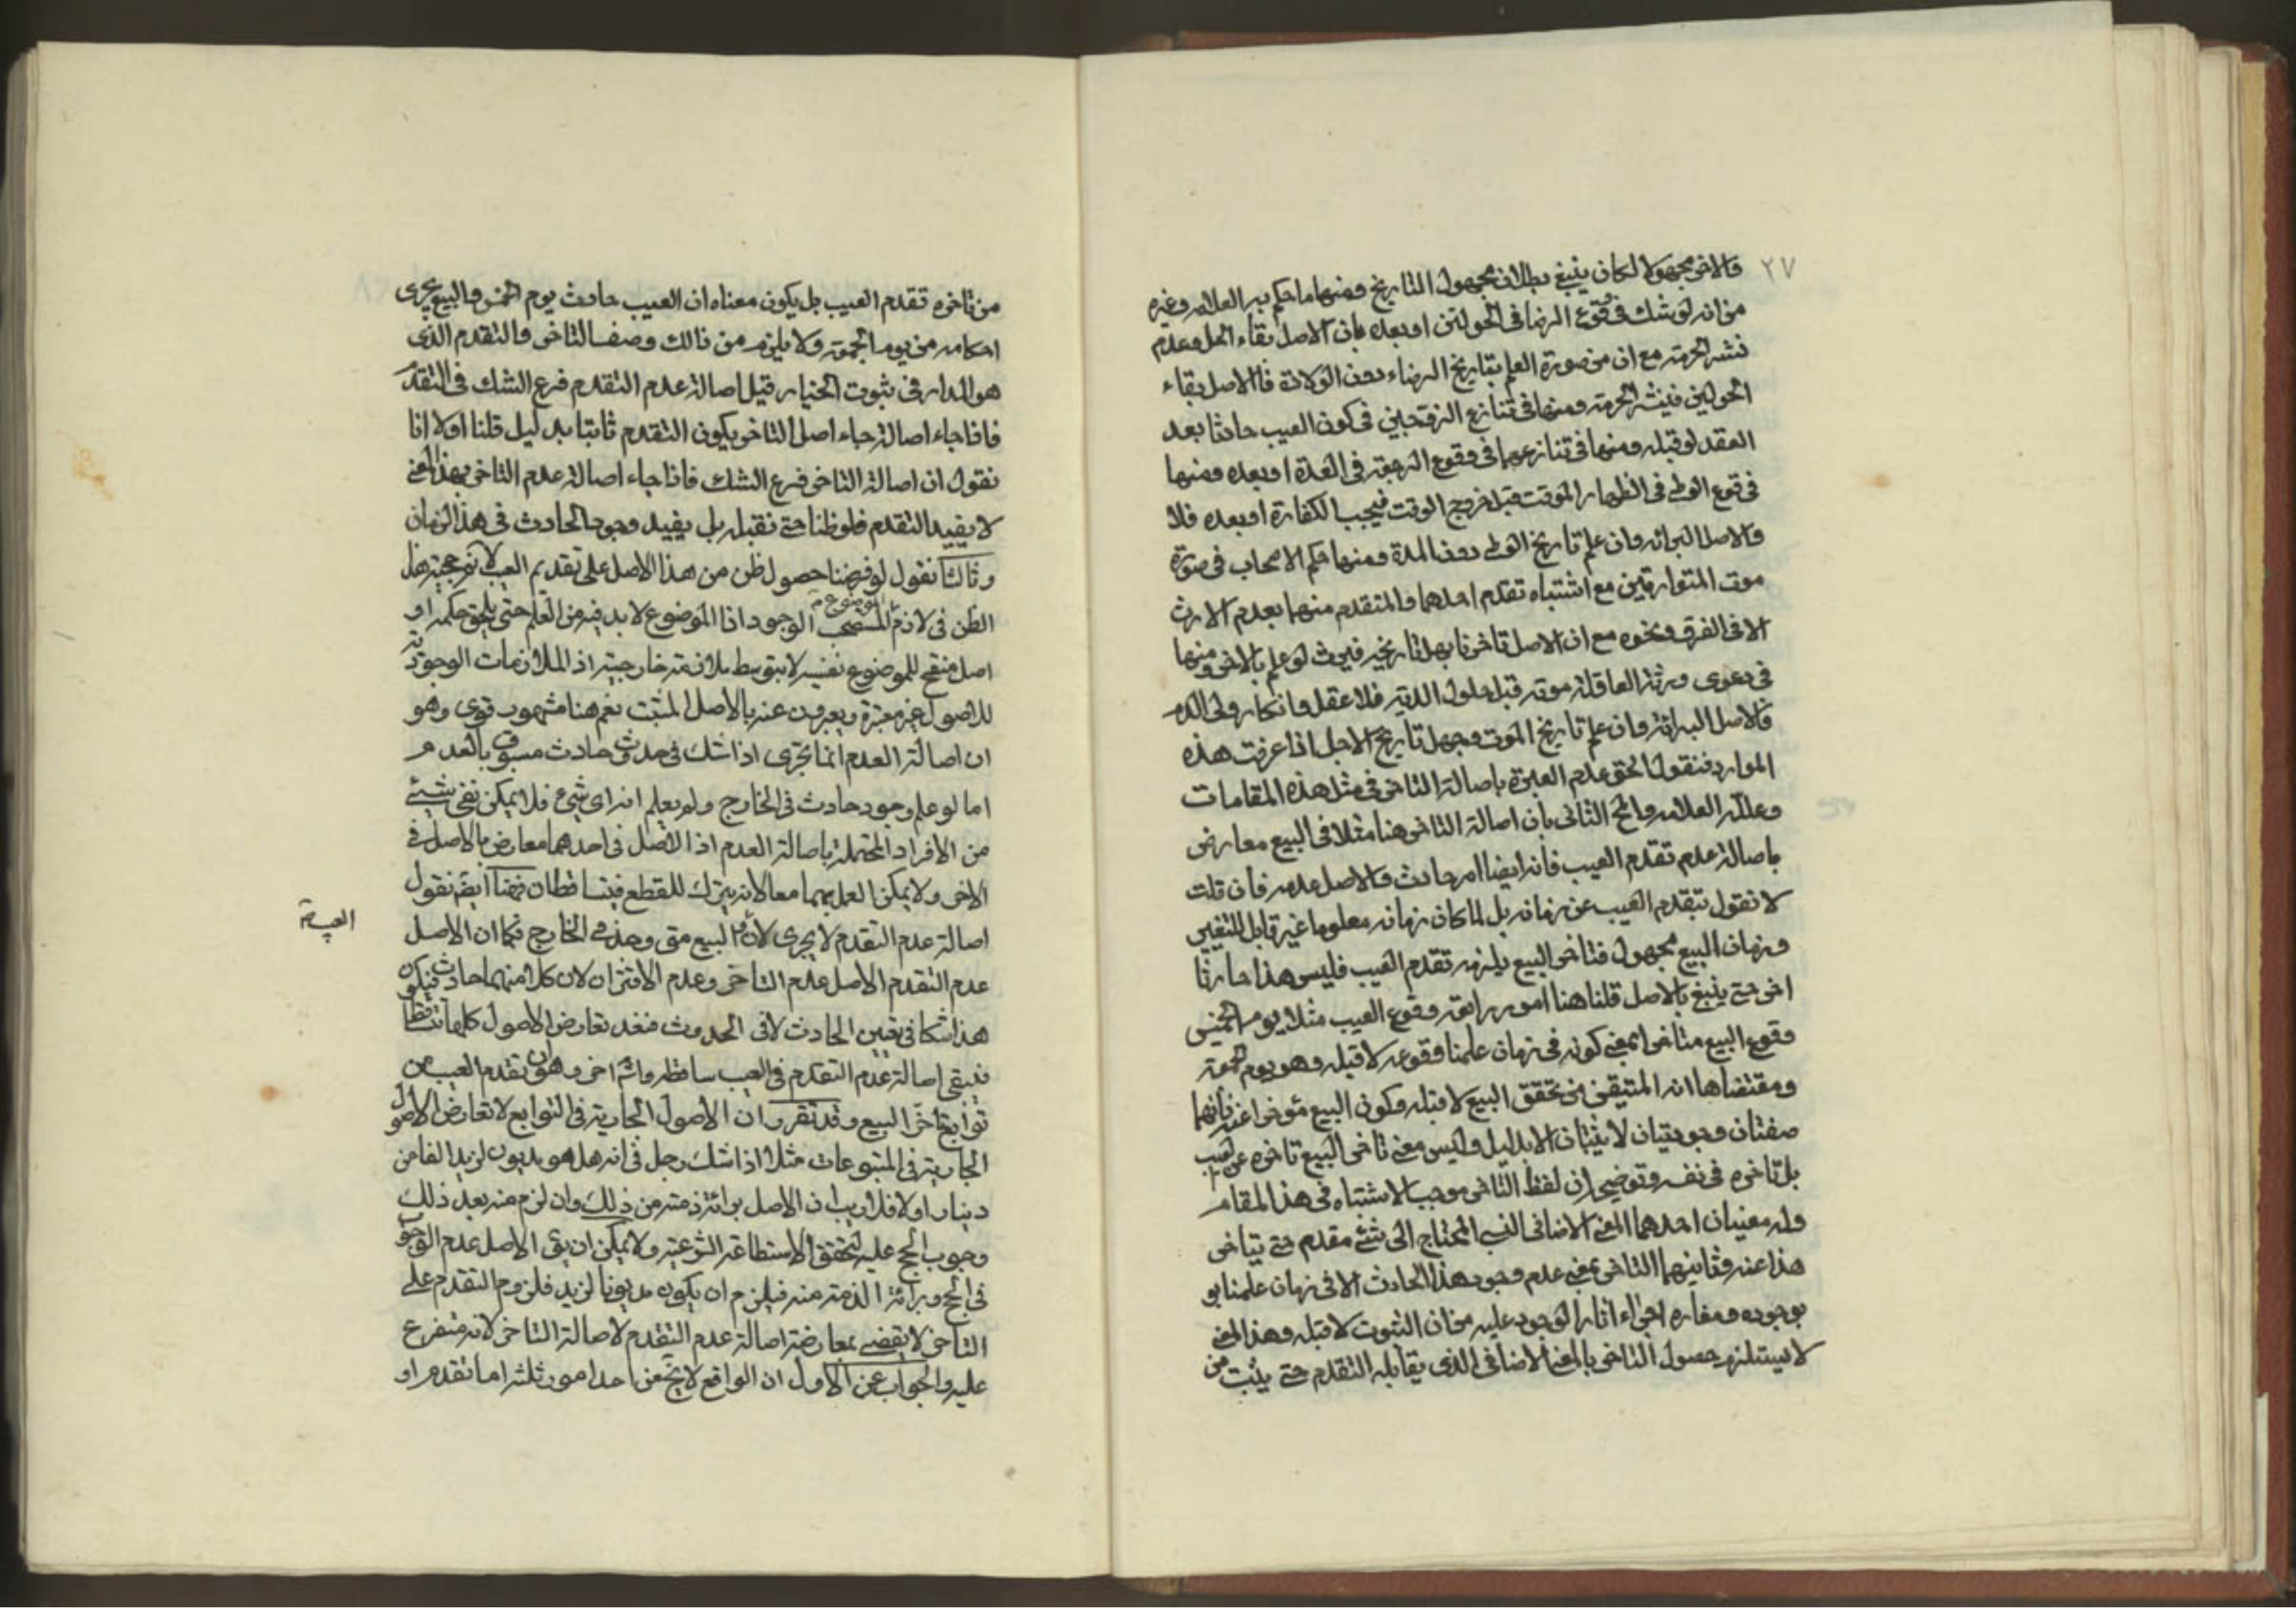 ٢٧
والاخر مجهولا لكان ينبغي بطلان مجهول التاريخ ومنها ما حكم به العلامه وغيره
من انه لو شك في وقوع الرضاع في الحولين او بعده بان الاصل بقاء الحل وعدم
نشر الحرمة مع ان من صورة العلم بتاريخ الرضاع دون الولادة فالاصل بقاء
الحولين فينشر الحرمة ومنها في تنازع الزوجين في كون العيب حادثا بعد
العقد او قبله ومنها في تنازعهما في وقوع الرجعة في العدة او بعده ومنها
في وقوع الوطي في الظهار الموقت قبل خروج الوقت فيجب الكفارة او بعده فلا
والاصل البرائة وان علم تاريخ الوطي دون المدة ومنها حكم الاصحاب في صورة
موت المتوارثين مع اشتباه تقدم احدهما والمتقدم منهما بعدم الارث
الا في الغرق ونحوه مع ان الاصل تاخر ما جهل تاريخه فيرث لو علم بالاخر ومنها
في دعوى ورثة العاقلة موته قبل حلول الدية فلا عقل وانكار ولي الدم
فالاصل البرائة وان علم تاريخ الموت وجهل تاريخ الاجل اذا عرفت هذه
الموارد فنقول الحق عدم العبرة باصالة التاخر في مثل هذه المقامات
وعلله العلامه والمحقق الثاني بان اصالة التاخر هنا مثلا في البيع معارض
باصالة عدم تقدم العيب فانه ايضا امر حادث والاصل عدمه فان قلت
لا نقول بتقدم العيب عن زمانه بل لما كان زمانه معلوما غير قابل للتغيير
وزمان البيع مجهول فتاخر البيع يلزمه تقدم العيب فليس هذا حادثا
اخر حتى ينبغي بالاصل قلنا هنا امور رابعة وقوع العيب مثلا يوم الخميس
وقوع البيع متاخرا بمعنى كونه في زمان علمنا وقوعه لا قبله وهو يوم الجمعة
ومقتضاها انه المتيقن من تحقق البيع لا قبله وكون البيع مؤخرا عنه فانهما
صفتان وجوديتان لا يثبتان الا بدليل وليس معنى تاخر البيع تاخره عن العيب
بل تاخره في نفسه وتوضيحه ان لفظ التاخر موجب الاشتباه في هذا المقام
وله معنيان احدهما المعنى الاضافي النسبي المحتاج الى شئ مقدم حتى يتاخر
هذا عنه وثانيهما التاخر بمعنى عدم وجود هذا الحادث الا في زمان علمنا بو
بوجوده ومفاده اجراء اثار الوجود عليه من ان الثبوت لا قبله وهذا المعنى
لا يستلزم حصول التاخر بالمعنى الاضافي الذي يقابله التقدم حتى يثبت من
من تاخره تقدم العيب بل يكون معناه ان العيب حادث يوم الخميس والبيع يجرى
احكامه من يوم الجمعة ولا يلزم من ذالك وصف التاخر والتقدم الذي
هو المدار في ثبوت الخيار قيل اصالة عدم التقدم فرع الشك في التقدم
فاذا جاء اصالة جاء اصل التاخر يكون التقدم ثابتا بدليل قلنا اولا انا
نقول ان اصالة التاخر فرع الشك فاذا جاء اصالة عدم التاخر بهذا المعنى
لا يفيد التقدم فلو ظنا حتى نقبله بل يفيد وجود الحادث في هذا الزمان
وثالثا نقول لو فرضنا حصول ظن من هذا الاصل على تقديم العيب لا نم حجية هذا
الظن في لازم المستصحب الوجود اذا الموضوع لا بد فيه من العلم حتى يلحق حكمه او
اصل منقح للموضوع نفسه لا بتوسط ملازمة خارجية اذ الملازمات الوجودية
للاصول غير معتبرة ويعبرون عنه بالاصل المثبت نعم هنا مشهوب قوى وهو
ان اصالة العدم انما تجرى اذا شك في حدوث حادث مسبوق بالعدم
اما لو علم وجود حادث في الخارج ولم يعلم انه اى شئ فلا يمكن نفى شئ
من الافراد المحتملة باصالة العدم اذ الاصل في احدهما معارض بالاصل في
الاخر ولا يمكن العمل بهما معا لانه يترك للقطع فيتساقطان فهنا ايضا نقول
اصالة عدم التقدم لا يجرى لان البيع متى وجد في الخارج فكما ان الاصل
العيب صح
عدم التقدم الاصل عدم التاخر وعدم الاقتران لان كلا منهما حادث فيكون
هذا شكا في تعين الحادث لا في الحدوث فعند تعارض الاصول كلها تساقطا
فيبقى اصالة عدم التقدم في العيب ساقطه وثم اخر وهو ان تقدم العيب من
توابع تاخر البيع وقد تقرر ان الاصول الجارية في التوابع لا تعارض الاصول
الجارية في المتبوعات مثلا اذا شك رجل في انه هل هو مديون لزيد الفا من
دينار او لا فلا ريب ان الاصل برائة ذمته من ذلك وان لزم منه بعد ذلك
وجوب الحج عليه لتحقق الاستطاعة الشرعية ولا يمكن ان يق الاصل عدم الوجوب
في الحج وبرائة الذمة منه فيلزم ان يكون مديونا لزيد فلزوم التقدم على
التاخر لا يقضى بمعارضة اصالة عدم التقدم لاصالة التاخر لانه متفرع
عليه والجواب عن الاول ان الواقع لا يخ عن احد امور ثلثة اما تقدم او